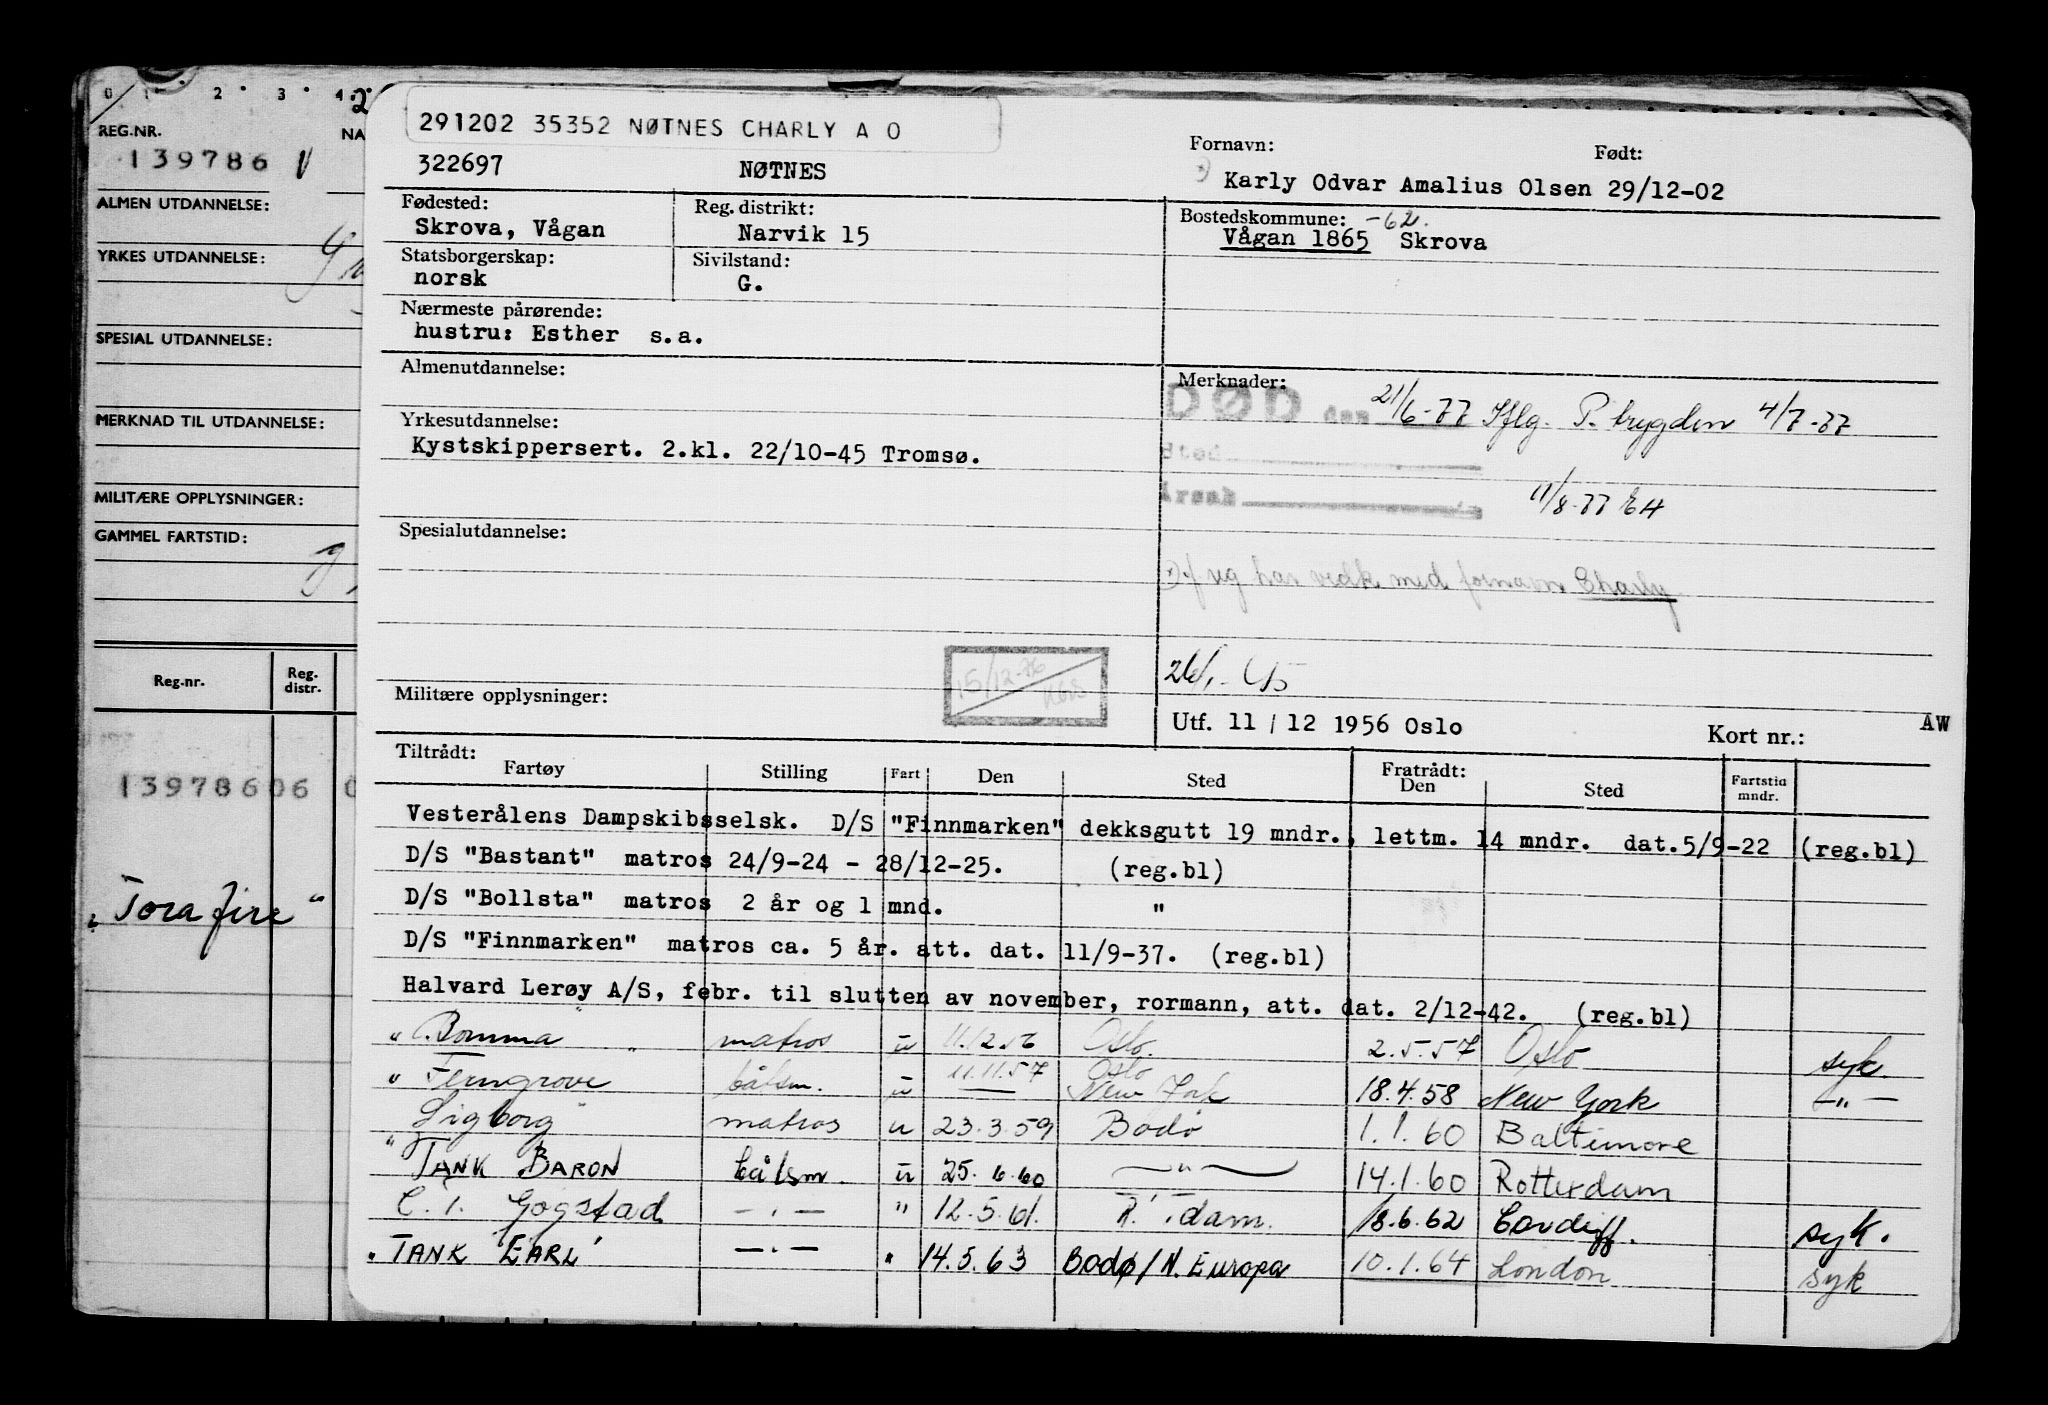 0 1 2 3 4
REG.NR. NA
139786 V
ALMEN UTDANNELSE:
YRKES UTDANNELSE:
SPESIAL UTDANNELSE:
MERKNAD TIL UTDANNELSE:
MILITÆRE OPPLYSNINGER:
GAMMEL FARTSTID:
Reg.nr. Reg. distr.
13978606 0
"Torafire"
291202 35352 NØTNES CHARLY A O
322697 NØTNES
Fornavn: Født:
Karly Odvar Amalius Olsen 29/12-02
Fødested: Reg. distrikt: Bostedskommune: -62.
Skrova, Vågan Narvik 15 Vågan 1865 Skrova
Statsborgerskap: Sivilstand:
norsk G.
Nærmeste pårørende:
hustru: Esther s.a.
Almenutdannelse: Merknader:
DØD den 21/6-77 Iflg. P. trygden 4/7-77
Yrkesutdannelse:
Kystskippersert. 2.kl. 22/10-45 Tromsø.
Sted
Årsak
11/8-77 EH
Spesialutdannelse:
jeg har vedk med fornavn Charly
15/12-76
Militære opplysninger:
Utf. 11 / 12 1956 Oslo Kort nr.: AW
Tiltrådt: Fratrådt:
Fartøy Stilling Fart Den Sted Den Sted Fartstid mndr.
Vesterålens Dampskibsselsk. D/S "Finnmarken" dekksgutt 19 mndr., lettm. 14 mndr. dat.5/9-22 (reg.bl)
D/S "Bastant" matros 24/9-24 - 28/12-25. (reg.bl)
D/S "Bollsta" matros 2 år og 1 mnd. "
D/S "Finnmarken" matros ca. 5 år. att. dat. 11/9-37. (reg.bl)
Halvard Lerøy A/S, febr. til slutten av november, rormann, att. dat. 2/12-42. (reg.bl)
" Bomma " matros u 11.12.56 Oslo. 2.5.57 Oslo syk.
11.11.57 Oslo
" Ferngrove båtsm. u — New York 18.4.58 New York — " —
Sigborg " matros u 23.3.59 Bodø 1.1.60 Baltimore
" TANK BARON båtsm. u 25.6.60 — " — 14.1.60 Rotterdam
C. T. Gogstad — " — " 12.5.61. R. dam. 18.6.62 Cardiff. syk.
" TANK EARL " — " — " 14.5.63 Bodø/N. Europa 10.1.64 London syk